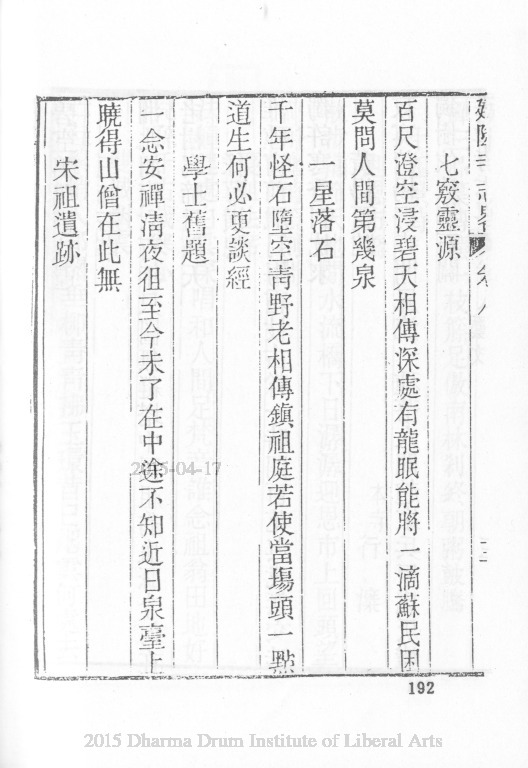 七竅靈源
百尺澄空浸碧天相傳深處有龍眠能將一滴蘇民困
莫問人間第幾泉
一星落石
千年怪石墮空青野老相傳鎮祖庭若使當塲頭一點
道生何必更談經
學士舊題
一念安禪淸夜徂至今未了在中途不知近日泉臺上
曉得山僧在此無
宋祖遺跡
192
2015-04-17
2015 Dharma Drum Institute of Liberal Arts